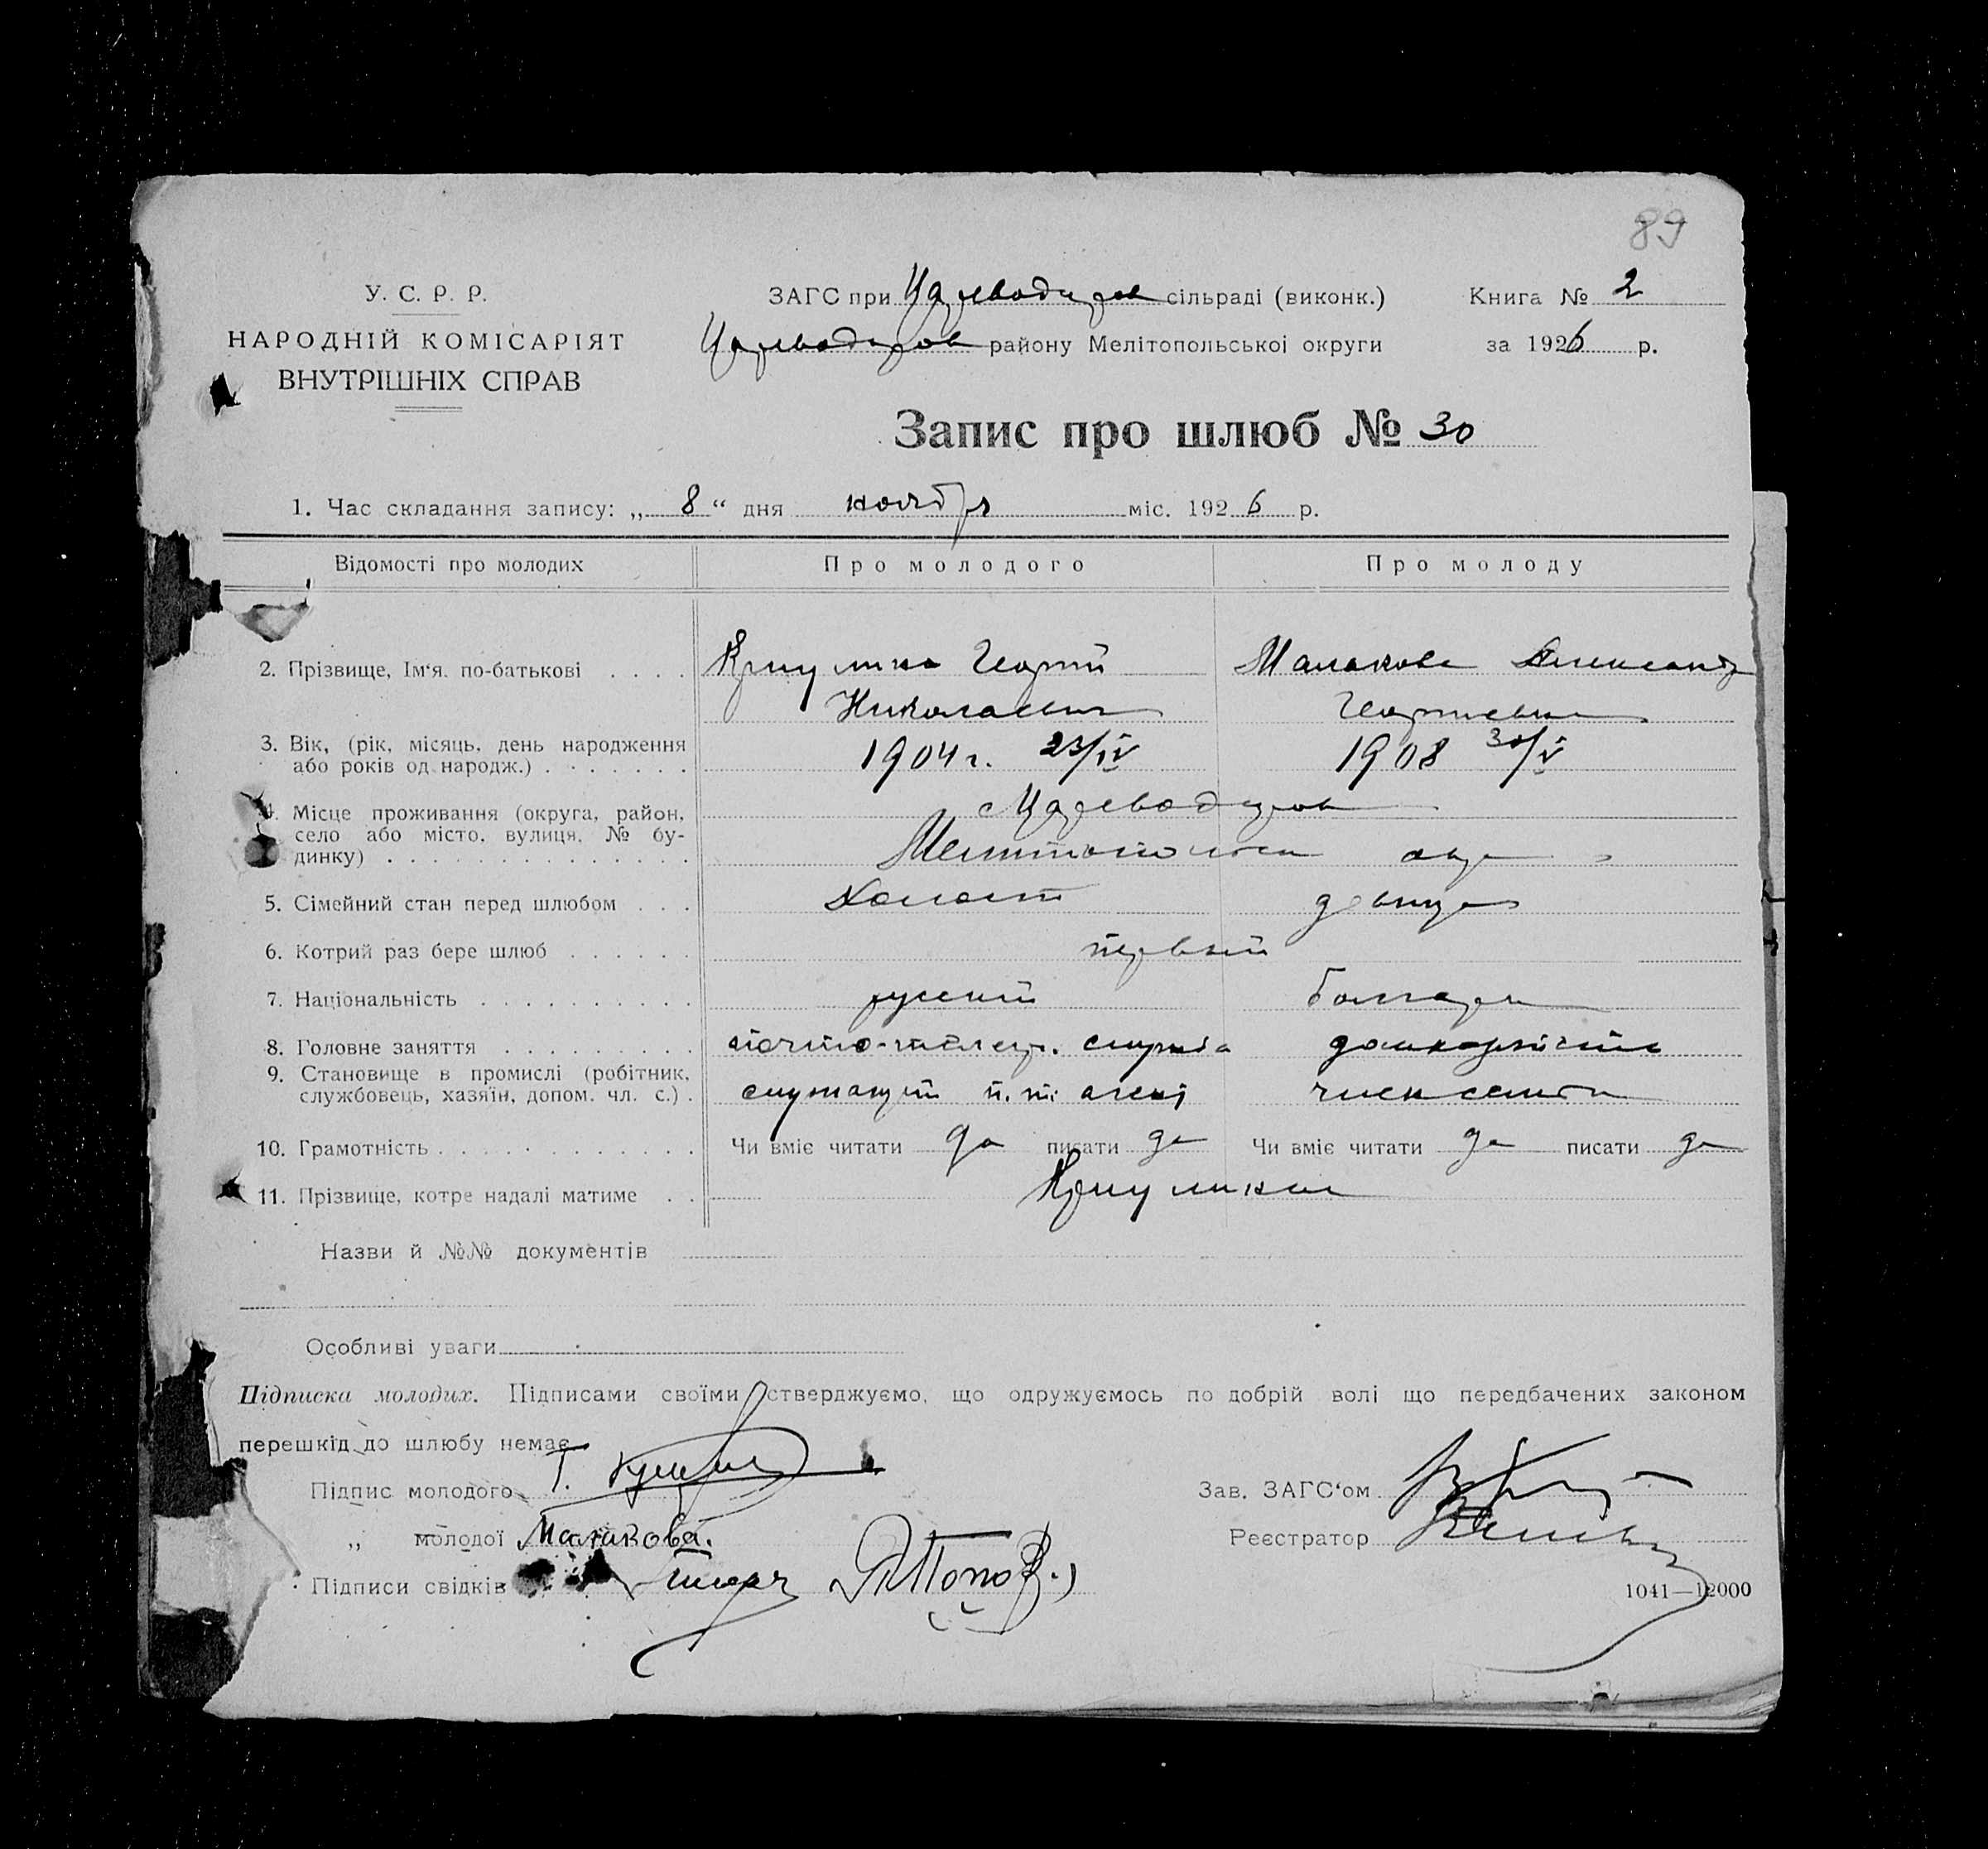 89
У. С. Р. Р.
НАРОДНІЙ КОМІСАРІЯТ
ВНУТРІШНІХ СПРАВ
ЗАГС при Цареводаров сільраді (виконк.)
Книга № 2
Цареводаров району Мелітопольської округи
за 1926 р.
Запис про шлюб № 30
1. Час складання запису: „ 8 “ дня ноября міс. 1926 р.
Відомості про молодих
Про молодого
Про молоду
2. Прізвище, Ім‘я, по-батькові . . . .
Георгий
Малакова Александр
Николаевич
Георгиевна
3. Вік, (рік, місяць, день народження
або років од народж.) . . . . . . .
1904 г. 23/IV
1908 30/V
4. Місце проживання (округа, район,
село або місто, вулиця, № бу-
динку) . . . . . . . . . . . . . .
с Цареводаров
Мелитопольск окр
5. Сімейний стан перед шлюбом . . .
Холост
девица
6. Котрий раз бере шлюб . . . . . .
первый
7. Національність . . . . . . . . . .
русский
болгарк
8. Головне заняття . . . . . . . . .
почто-телегр. служба
домхозяйств
9. Становище в промислі (робітник,
службовець, хазяїн, допом. чл. с.) .
служащий п. т. агент
член семьи
10. Грамотність . . . . . . . . . . . .
Чи вміє читати да писати да
Чи вміє читати да писати да
11. Прізвище, котре надалі матиме . .
Назви й №№ документів
Особливі уваги
Підписка молодих. Підписами своїми стверджуємо, що одружуємось по добрій волі що передбачених законом
перешкід до шлюбу немає
Підпис молодого Г.
Зав. ЗАГС‘ом
„ молодої Малакова.
Реєстратор
Підписи свідків Попов.
1041—12000